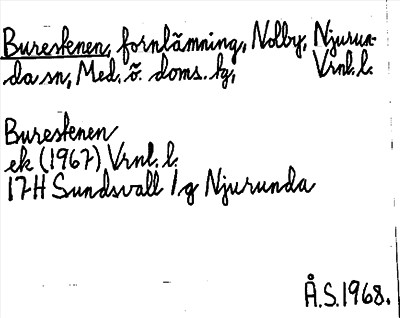 Burestenen, fornlämning, Nolby, Njurun-
da sn, Med. ö. doms. hg, Vrnl. l.
Burestenen
ek (1967) Vrnl. l.
17H Sundsvall 1g Njurunda
Å.S. 1968.